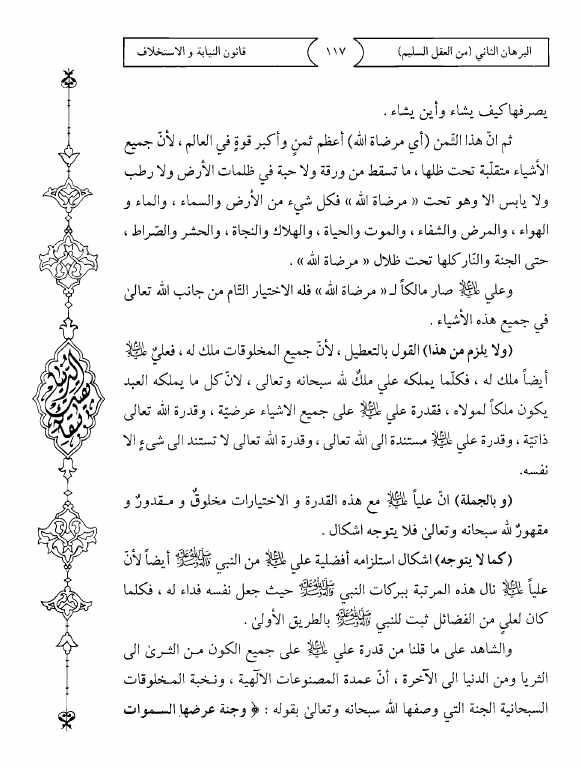 البرهان الثاني (من العقل السليم)
١١٧
قانون النيابة و الاستخلاف
يصرفها كيف يشاء وأين يشاء .
ثم انّ هذا الثّمن (أي مرضاة الله) أعظم ثمنٍ وأكبر قوةٍ في العالم ، لأنّ جميع
الأشياء متقلّبة تحت ظلها ، ما تسقط من ورقة ولا حبة في ظلمات الأرض ولا رطب
ولا يابس الا وهو تحت « مرضاة الله » فكل شيء من الأرض والسماء ، والماء و
الهواء ، والمرض والشفاء ، والموت والحياة ، والهلاك والنجاة ، والحشر والصّراط ،
حتى الجنة والنّار كلها تحت ظلال « مرضاة الله » .
وعلي عليه السلام صار مالكاً لـ « مرضاة الله » فله الاختيار التّام من جانب الله تعالىٰ
في جميع هذه الأشياء .
(ولا يلزم من هذا) القول بالتعطيل ، لأنّ جميع المخلوقات ملك له ، فعليٌ عليه السلام
أيضاً ملك له ، فكلّما يملكه علي ملكٌ لله سبحانه وتعالى ، لانّ كل ما يملكه العبد
يكون ملكاً لمولاه ، فقدرة علي عليه السلام على جميع الاشياء عرضيّة ، وقدرة الله تعالى
ذاتيّة ، وقدرة علي عليه السلام مستندة الى الله تعالى ، وقدرة الله تعالى لا تستند الى شيءٍ الا
نفسه.
(و بالجملة) انّ علياً عليه السلام مع هذه القدرة و الاختيارات مخلوقٌ و مقدورٌ و
مقهورٌ لله سبحانه وتعالىٰ فلا يتوجه اشكال .
(كما لا يتوجه) اشكال استلزامه أفضلية علي عليه السلام من النبي صلى الله عليه وآله وسلم أيضاً لأنّ
علياً عليه السلام نال هذه المرتبة ببركات النبي صلى الله عليه وآله وسلم حيث جعل نفسه فداء له ، فكلما
كان لعلي من الفضائل ثبت للنبي صلى الله عليه وآله وسلم بالطريق الأولىٰ .
والشاهد على ما قلنا من قدرة علي عليه السلام على جميع الكون مـن الثـرىٰ الى
الثريا ومن الدنيا الى الآخرة ، أنّ عمدة المصنوعات الآلهية ، ونخبة المـخلوقات
السبحانية الجنة التي وصفها الله سبحانه وتعالىٰ بقوله : ﴿ وجنة عرضها السموات